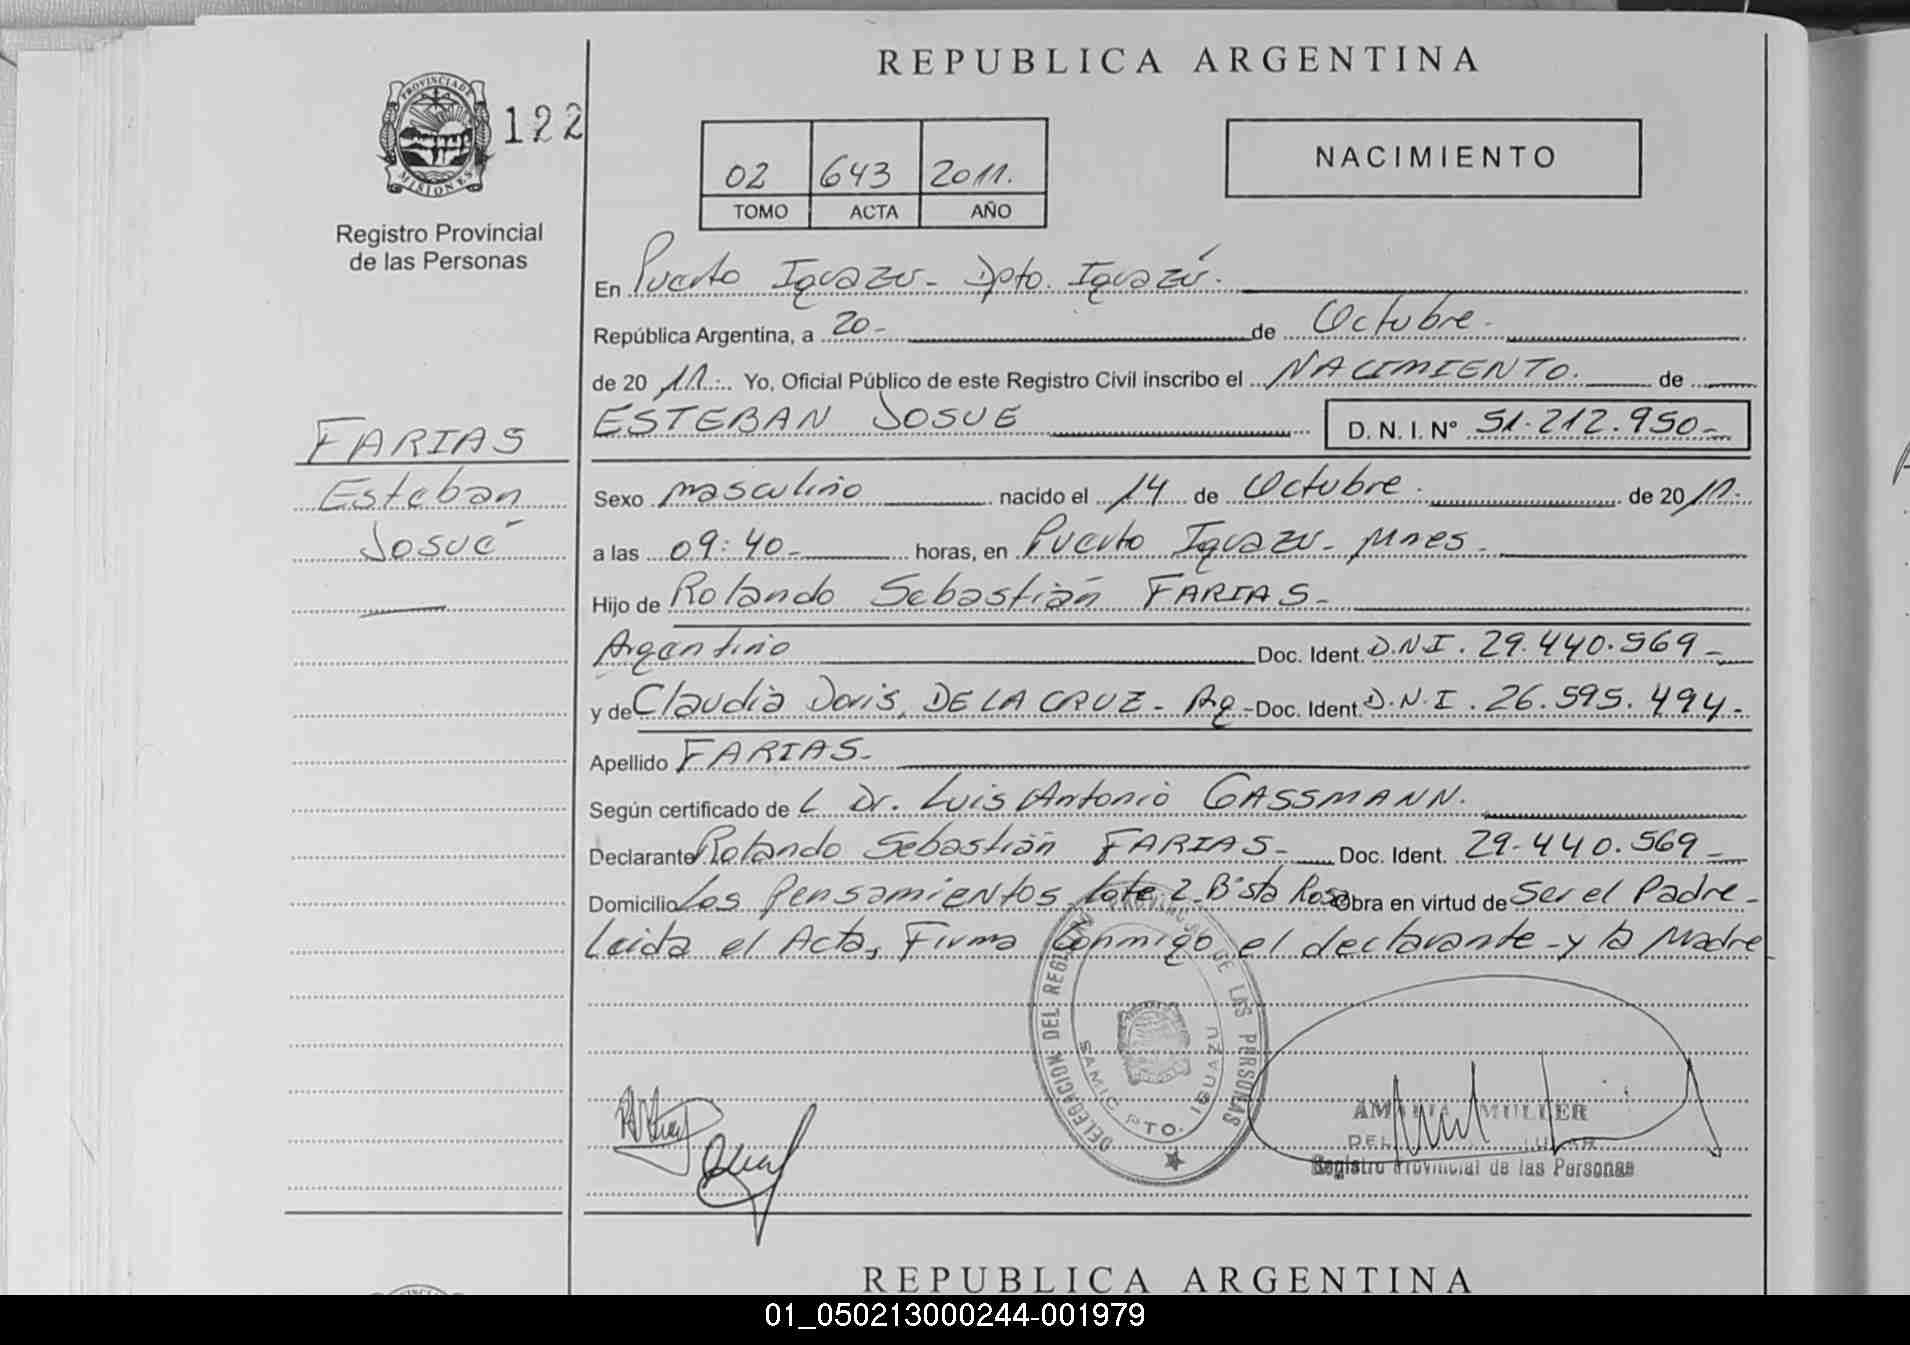 REPUBLICA ARGENTINA
PROVINCIA DE MISIONES
122
Registro Provincial
de las Personas
02 643 2011.
TOMO ACTA AÑO
NACIMIENTO
En Puerto Iguazu - Dpto. Iguazú.
República Argentina, a 20 - de Octubre -
de 20 11 Yo, Oficial Público de este Registro Civil inscribo el NACIMIENTO. de
ESTEBAN JOSUE D. N. I. N° 51.212.950 -
FARIAS
Esteban
Josué
Sexo masculino nacido el 14 de Octubre. de 20 11.
a las 09:40 - horas, en Puerto Iguazu - Mnes -
Hijo de Rolando Sebastián FARIAS -
Argentino Doc. Ident. D.N.I. 29.440.569 -
y de Claudia Doris, DE LA CRUZ - Arg - Doc. Ident. D.N.I. 26.595.494 -
Apellido FARIAS -
Según certificado de L Dr. Luis Antonio GASSMANN.
Declarante Rolando Sebastián FARIAS - Doc. Ident. 29.440.569 -
Domicilio Los Pensamientos Lote 2 - B° Sta Rosa Obra en virtud de Ser el Padre -
Leida el Acta, Firma Conmigo el declarante - y la Madre
DELEGACION DEL REGISTRO PROVINCIAL DE LAS PERSONAS
SAMIC PTO. IGUAZU
MULLER
Registro Provincial de las Personas
REPUBLICA ARGENTINA
01_050213000244-001979